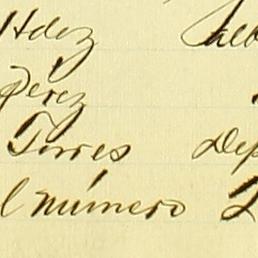 Hdez
Pérez
Torres Dep
l número 2